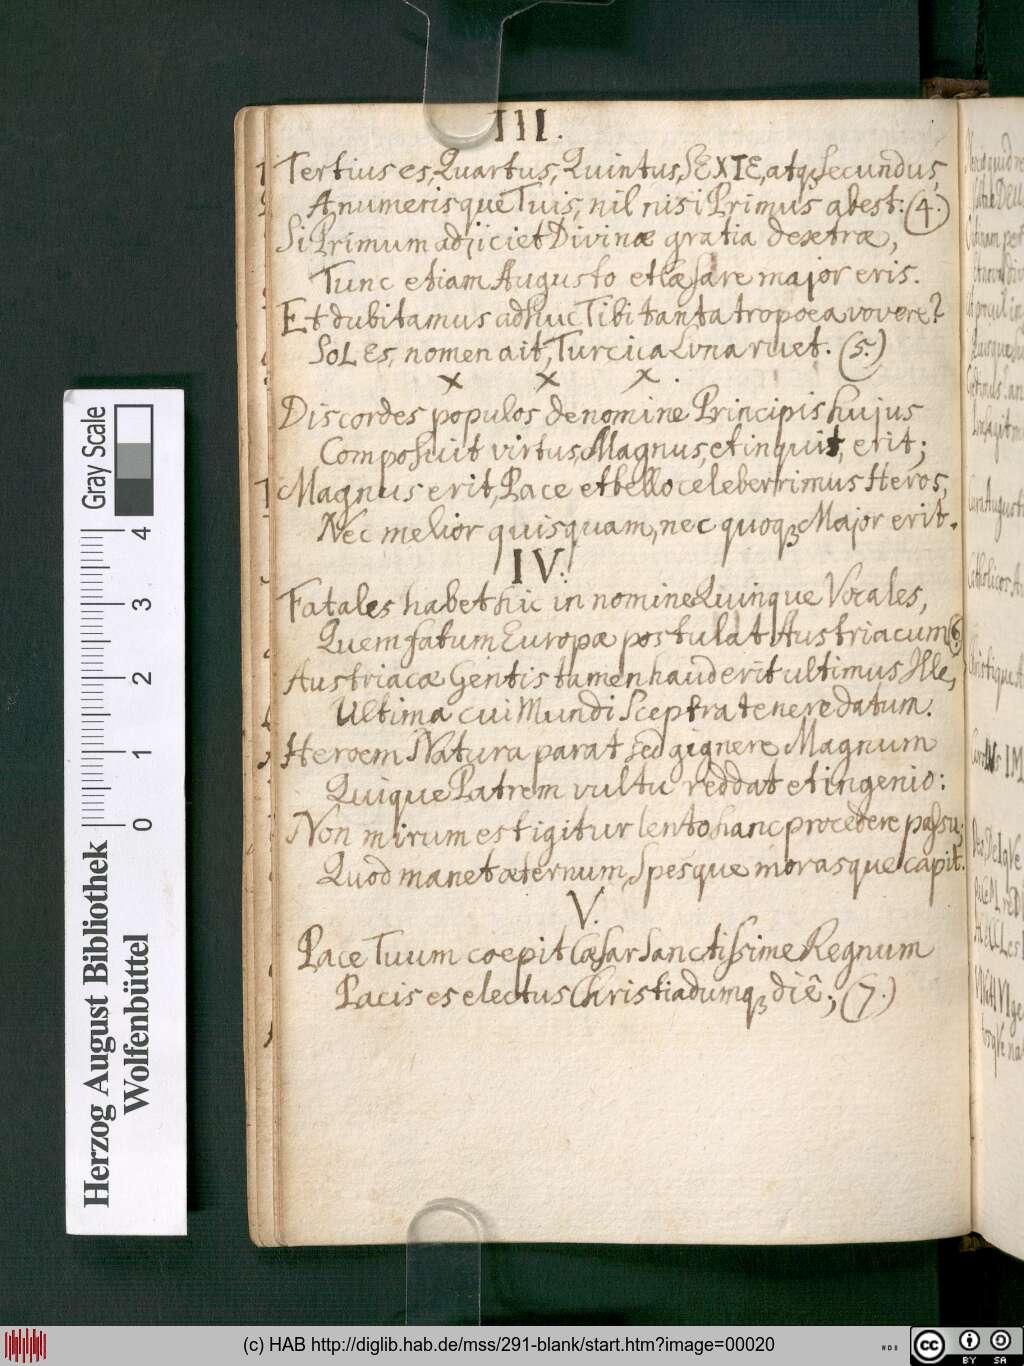 III.
Tertius es, Quartus, Quintus, SEXTE, atqꝫ Secundus,
A numerisque Tuis, nil nisi Primus abest: (4.)
Si Primum adjiciet Divinæ gratia dextræ,
Tunc etiam Augusto et Cæsare major eris.
Et dubitamus adhuc Tibi tanta tropoea vovere?
SoL Es, nomen ait, Turcica Luna ruet. (5.)
x x x
Discordes populos de nomine Principis hujus
Composuit virtus, Magnus, et inquit, erit;
Magnus erit, Pace et bello celeberrimus Heros,
Nec melior quisquam, nec quoqꝫ Major erit.
IV.
Fatales habet hic in nomine Quinque Vocales,
Quem fatum Europæ postulat Austriacum (6.)
Austriacæ Gentis tamen haud erit ultimus Ille,
Ultima cui Mundi Sceptra tenere datum.
Heroem Natura parat sed gignere Magnum
Quique Patrem vultu reddat et ingenio:
Non mirum est igitur lento hanc procedere passu;
Quod manet æternum, Spesque morasque capit.
V.
Pace Tuum coepit Cæsar Sanctissime Regnum
Pacis es electus Christiadumqꝫ diê; (7.)
Gray Scale
4
3
2
1
0
Herzog August Bibliothek
Wolfenbüttel
(c) HAB http://diglib.hab.de/mss/291-blank/start.htm?image=00020
WDB
cc
BY SA